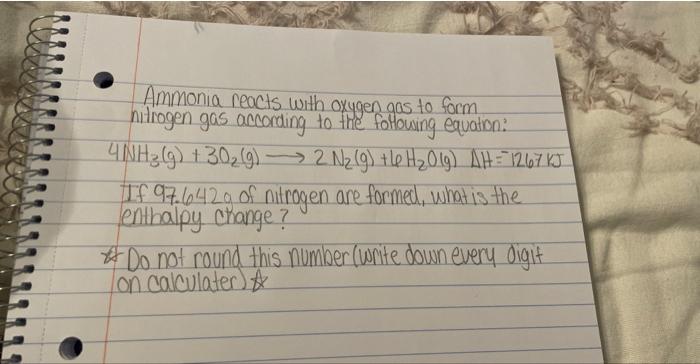 Ammonia reacts with oxygen gas to form
nitrogen gas according to the following equation:
4NH₃(g) + 3O₂(g) ⟶ 2 N₂(g) + 6 H₂O(g) ΔH = ⁻1267 KJ
If 97.642g of nitrogen are formed, what is the
enthalpy change?
☆ Do not round this number (write down every digit
on calculater) ☆